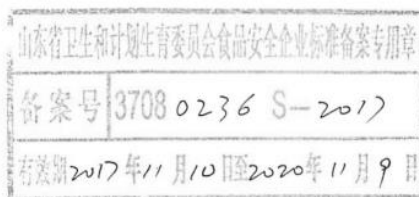 山东省卫生和计划生育委员会食品安全企业标准备案专用章
备案号 3708 0236 S—2017
有效期2017年11月10日至2020年11月9日